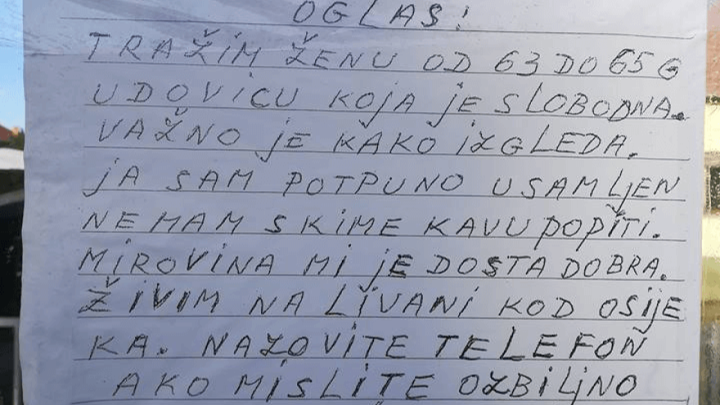 OGLAS!
TRAŽIM ŽENU OD 63 DO 65 G
UDOVICU KOJA JE SLOBODNA.
VAŽNO JE KAKO IZGLEDA.
JA SAM POTPUNO USAMLJEN
NEMAM S KIME KAVU POPITI.
MIROVINA MI JE DOSTA DOBRA.
ŽIVIM NA LIVANI KOD OSIJE
KA. NAZOVITE TELEFON
AKO MISLITE OZBILJNO